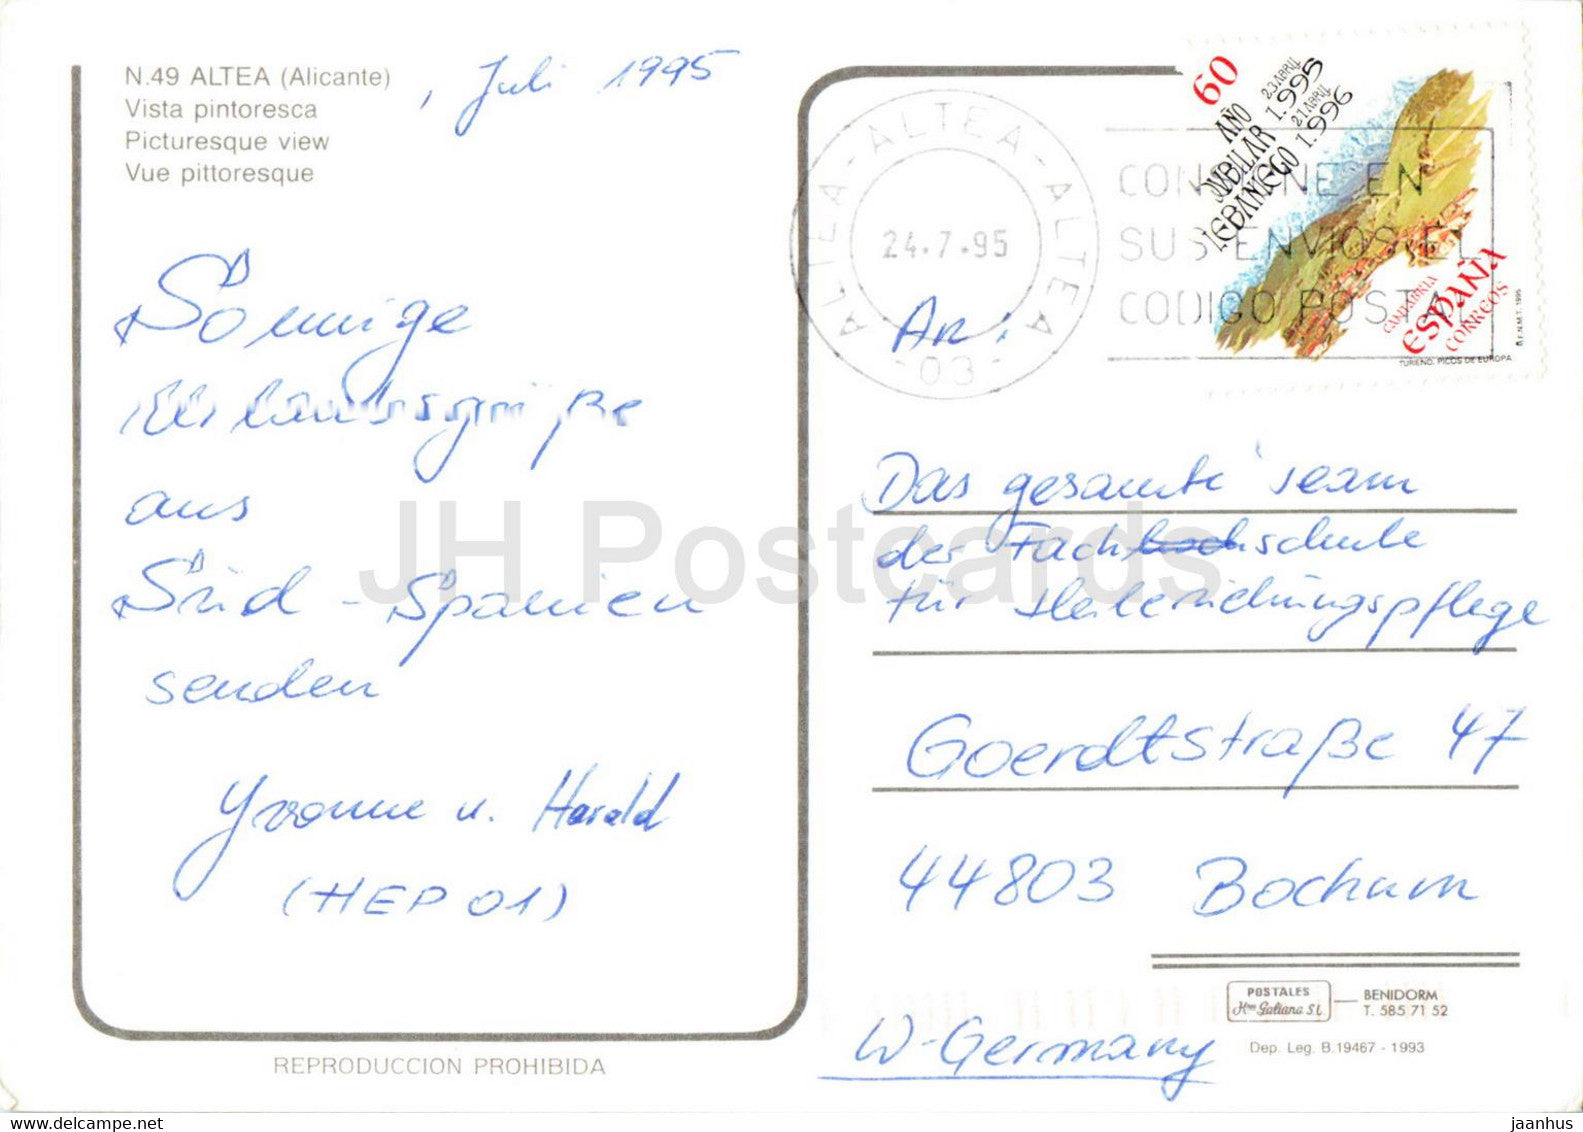 N.49 ALTEA (Alicante)
Vista pintoresca
Picturesque view
Vue pittoresque
, Juli 1995
Sonnige
Urlaubsgrüße
aus
Süd - Spanien
senden
Yvonne u. Harald
(HEP 01)
REPRODUCCION PROHIBIDA
ALTEA - ALTEA - ALTEA
24.7.95
- 03 -
CON NE EN
SUS ENVIOS EL
CODIGO POSTAL
60
AÑO
JUBILAR
LEBANIEGO
23 ABRIL
1.995
21 ABRIL
1.996
CANTABRIA
ESPAÑA
CORREOS
F.N.M.T. 1995
TURIENO. PICOS DE EUROPA
An:
Das gesamte Team
der Fachhochschule
für Heilerziehungspflege
Goerdtstraße 47
44803 Bochum
W-Germany
POSTALES
Hnos Galiana S.L.
BENIDORM
T. 585 71 52
Dep. Leg. B.19467 - 1993
JH Postcards
www.delcampe.net
jaanhus